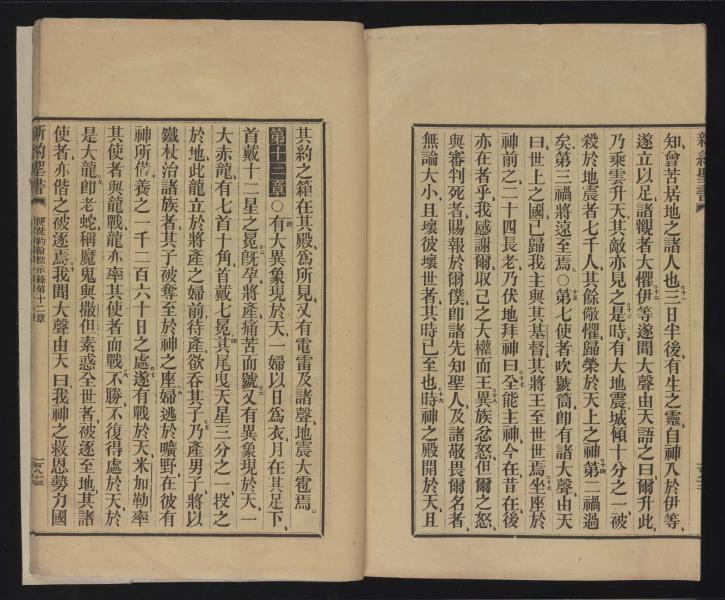 知曾苦居地之諸人也三日半後有生之靈自神入於伊等
遂立以足諸觀者大懼伊等遂聞大聲由天語之曰爾升此
乃乘雲升天其敵亦見之是時有大地震城傾十分之一被
殺於地震者七千人其餘儆懼歸榮於天上之神第二禍過
矣第三禍將遠至焉○第七使者吹號筒卽有諸大聲由天
曰世上之國已歸我主與其基督其將王至世世焉坐座於
神前之二十四長老乃伏地拜神曰全能主神今在昔在後
亦在者乎我感謝爾取己之大權而王異族忿怒但爾之怒
與審判死者賜報於爾僕卽諸先知聖人及諸敬畏爾名者
無論大小且壞彼壞世者其時已至也時神之殿開於天且
其約之箱在其殿爲所見又有電雷及諸聲地震大雹焉
第十二章○有大異象現於天一婦以日爲衣月在其足下
首戴十二星之冕旣孕將產痛苦而號又有異象現於天一
大赤龍有七首十角首戴七冕其尾曳天星三分之一投之
於地此龍立於將產之婦前待產欲吞其子乃產男子將以
鐵杖治諸族者其子被奪至於神之座婦逃於曠野在彼有
神所備養之一千二百六十日之處遂有戰於天米加勒率
其使者與龍戰龍亦率其使者而戰不勝不復得處於天於
是大龍卽老蛇稱魔鬼與撒但素惑全世者被逐至地其諸
使者亦偕之被逐焉我聞大聲由天曰我神之救恩勢力國
新約聖書
使徒約翰默示錄第十二章